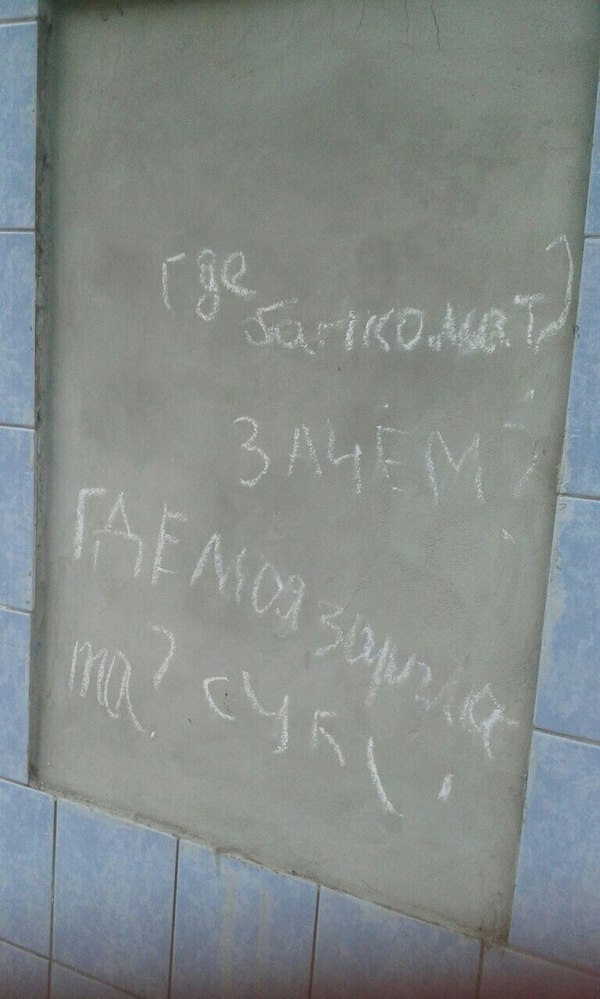 где
банкомат?
ЗАЧЕМ?
ГДЕ МОЯ зарпла
та? СУКИ!